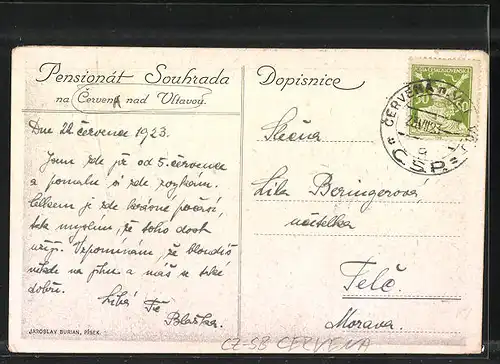 Pensionát Souhrada
na Červené nad Vltavou.
Dne 22. července 1923.
Jsem zde již od 5. července
a pomalu si zde zvykám.
Celkem je zde krásné počasí,
tak myslím, že toho dost
užiji. Vzpomínám, že bloudíš
někde na jihu a máš se také
dobře.
Líbá Tě
Blaška.
JAROSLAV BURIAN, PÍSEK.
Dopisnice
ČERVENÁ n. Vlt.
22.VII.23
Č.S.P.
Slečna
Lila Beringerová,
učitelka
Telč
Morava.
CZ-SB CERVENA